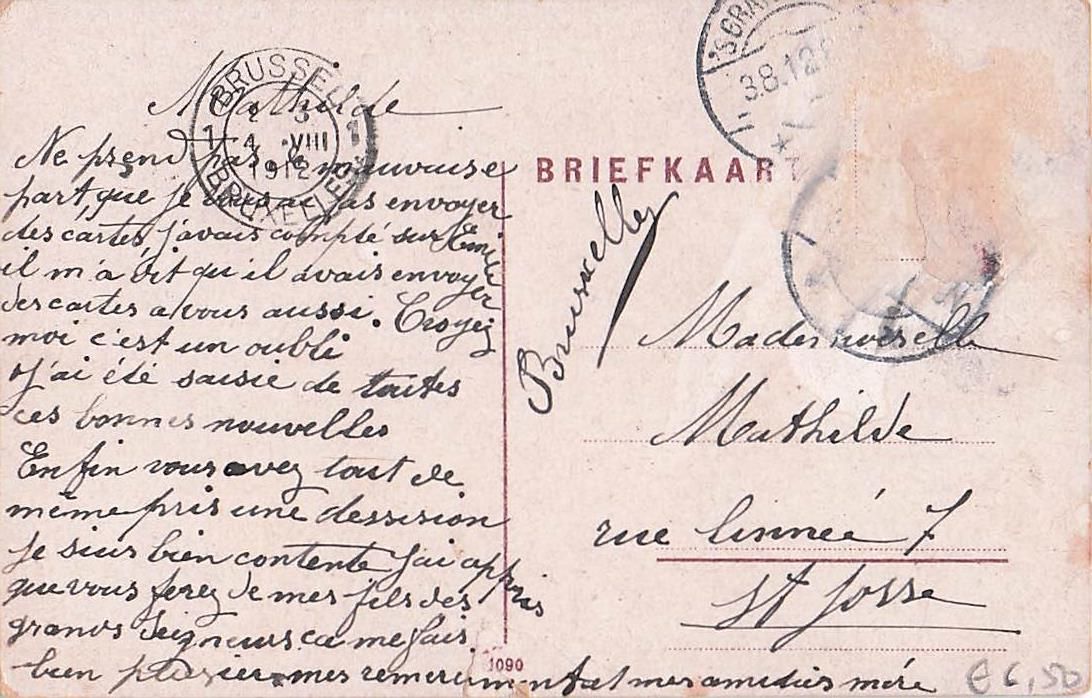 Mathilde
Ne prend pas mauvaise
part que je vous ai pas envoyer
des cartes, j'avais compté sur Emile
il m'a dit qu'il avais envoyer
des cartes a vous aussi. Croyez
moi c'est un oubli
J'ai été saisie de toutes
ces bonnes nouvelles
Enfin vous avez tout de
même pris une dessision
Je suis bien contente J'ai appris
que vous ferez de mes fils des
grands Seigneurs. ca me fais
bien plaisier mes remerciment al mes amitiés mére
BRUSSEL
1 1
4 VIII
1912
BRUXELLES
'S GRA
3.8.12
BRIEFKAART
Bruxelles
Mademoiselle
Mathilde
rue linneé 7
St Josse
1090
€ 6,50